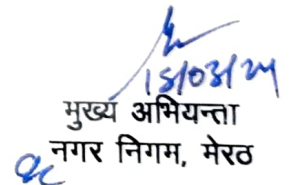 15/03/24
मुख्य अभियन्ता
नगर निगम, मेरठ